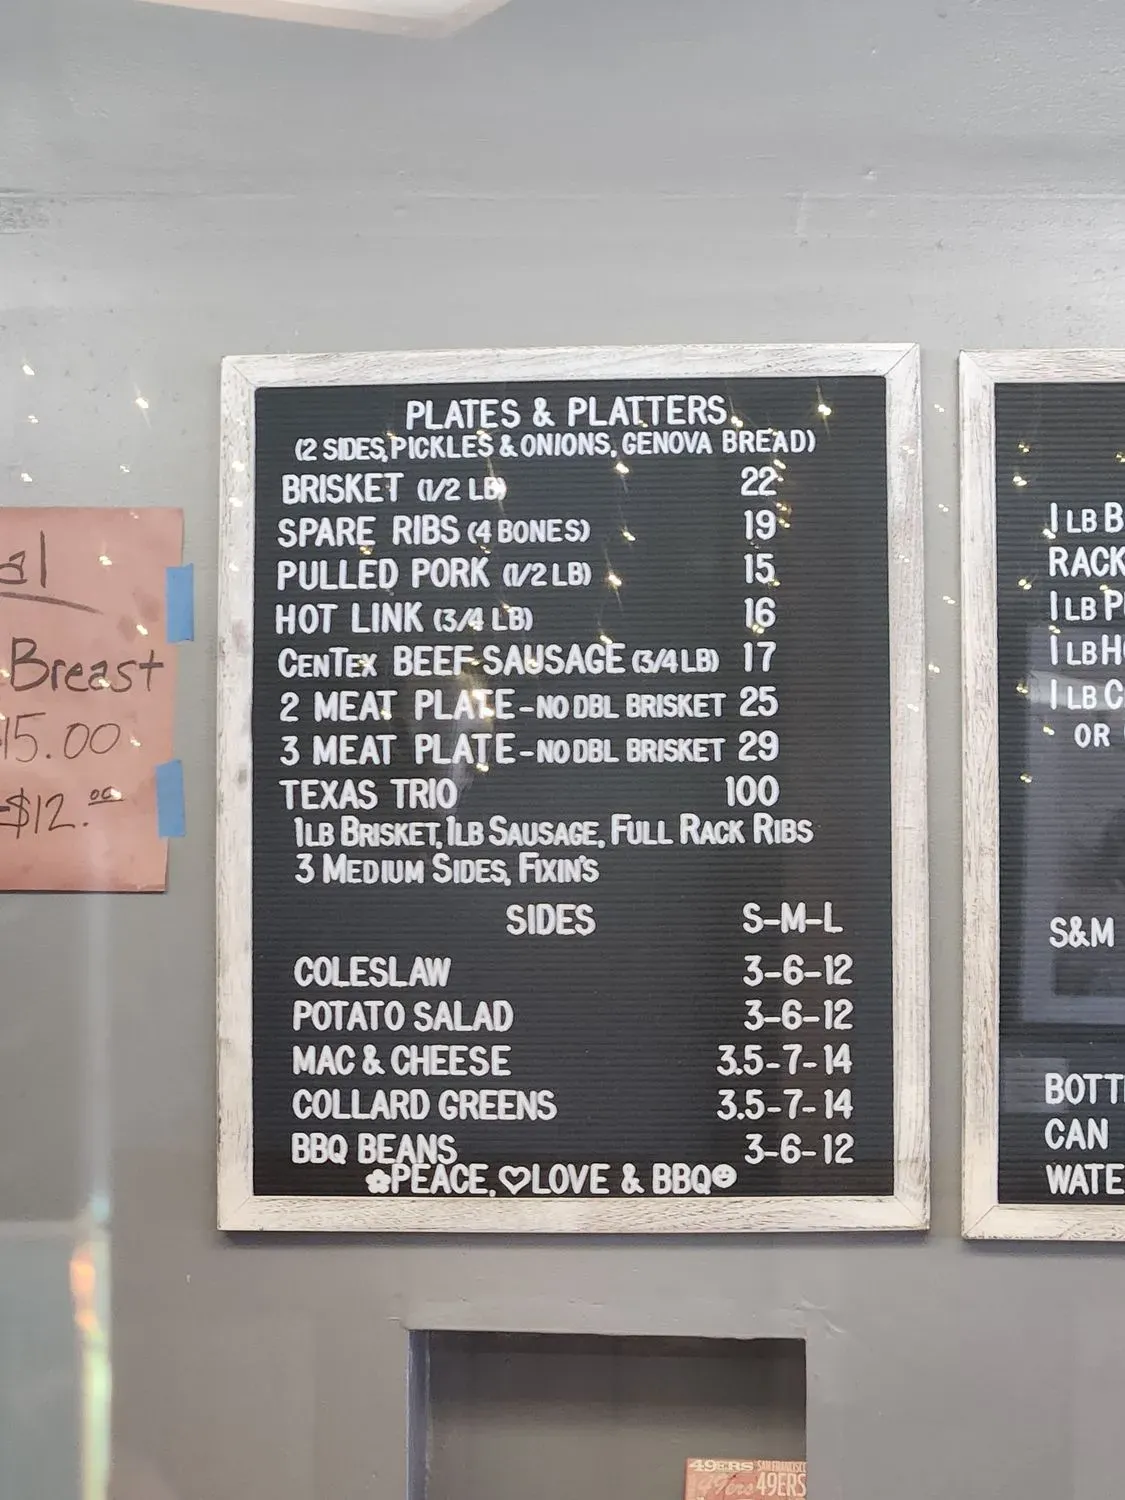 PLATES & PLATTERS
(2 SIDES, PICKLES & ONIONS, GENOVA BREAD)
BRISKET (1/2 LB) 22
SPARE RIBS (4 BONES) 19
PULLED PORK (1/2 LB) 15
HOT LINK (3/4 LB) 16
CENTEX BEEF SAUSAGE (3/4 LB) 17
2 MEAT PLATE - NO DBL BRISKET 25
3 MEAT PLATE - NO DBL BRISKET 29
TEXAS TRIO 100
1LB BRISKET, 1LB SAUSAGE, FULL RACK RIBS
3 MEDIUM SIDES, FIXIN'S
SIDES S-M-L
COLESLAW 3-6-12
POTATO SALAD 3-6-12
MAC & CHEESE 3.5-7-14
COLLARD GREENS 3.5-7-14
BBQ BEANS 3-6-12
PEACE, ♡LOVE & BBQ☺
Breast
15.00
$12.00
1 LB B
RACK
1 LB P
1 LB H
1 LB C
OR
S&M
BOTT
CAN
WATE
49ERS SAN FRANCISCO
49ers 49ERS